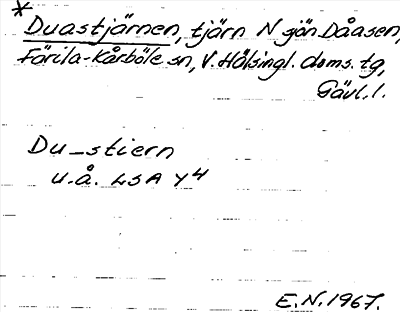 *
Duastjärnen, tjärn N sjön Dåasen,
Färila-Kårböle sn, V. Hälsingl. doms. tg,
Gävl. l.
Du_stiern
u.å. LSA Y4
E.N. 1967.